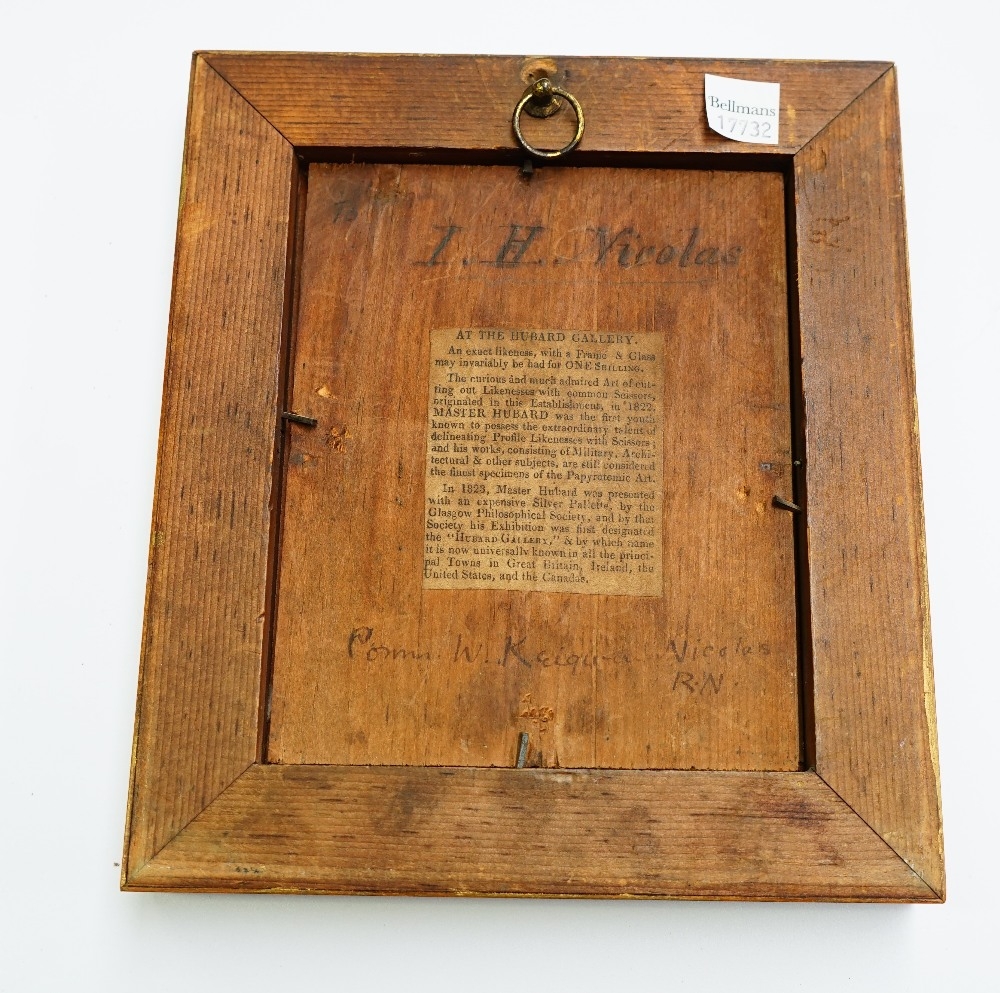 Bellmans
17732
I. H. Nicolas
AT THE HUBARD GALLERY.
An exact likeness, with a Frame & Glass
may invariably be had for ONE SHILLING.
The curious and much admired Art of cut-
ting out Likenesses with common Scissors,
originated in this Establishment, in 1822.
MASTER HUBARD was the first youth
known to possess the extraordinary talent of
delineating Profile Likenesses with Scissors;
and his works, consisting of Military, Archi-
tectural & other subjects, are still considered
the finest specimens of the Papyrotomic Art.
In 1823, Master Hubard was presented
with an expensive Silver Pallette, by the
Glasgow Philosophical Society, and by that
Society his Exhibition was first designated
the "HUBARD GALLERY," & by which name
it is now universally known in all the princi-
pal Towns in Great Britain, Ireland, the
United States, and the Canadas.
W. Keigwin Nicolas
R.N.